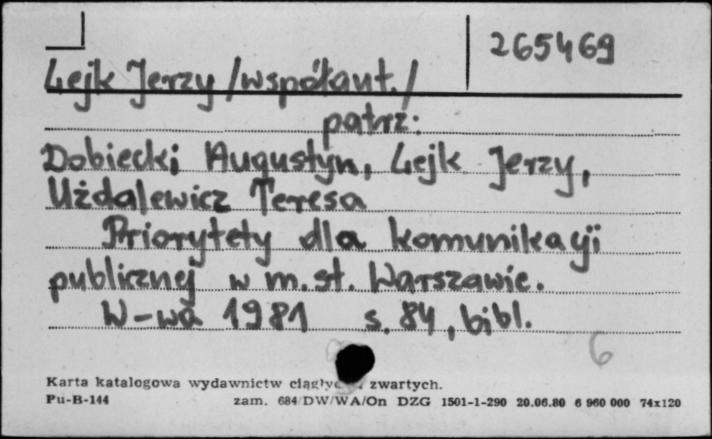 265469
Lejk Jerzy /współaut./
patrz:
Dobiecki Augustyn, Lejk Jerzy,
Użdalewicz Teresa
Priorytety dla komunikacji
publicznej w m.st. Warszawie.
W-wa 1981 s. 84, bibl.
6
Karta katalogowa wydawnictw zwartych.
Pu-B-144 zam. 684/DW/WA/On DZG 1501-1-290 20.06.80 6 960 000 74x120